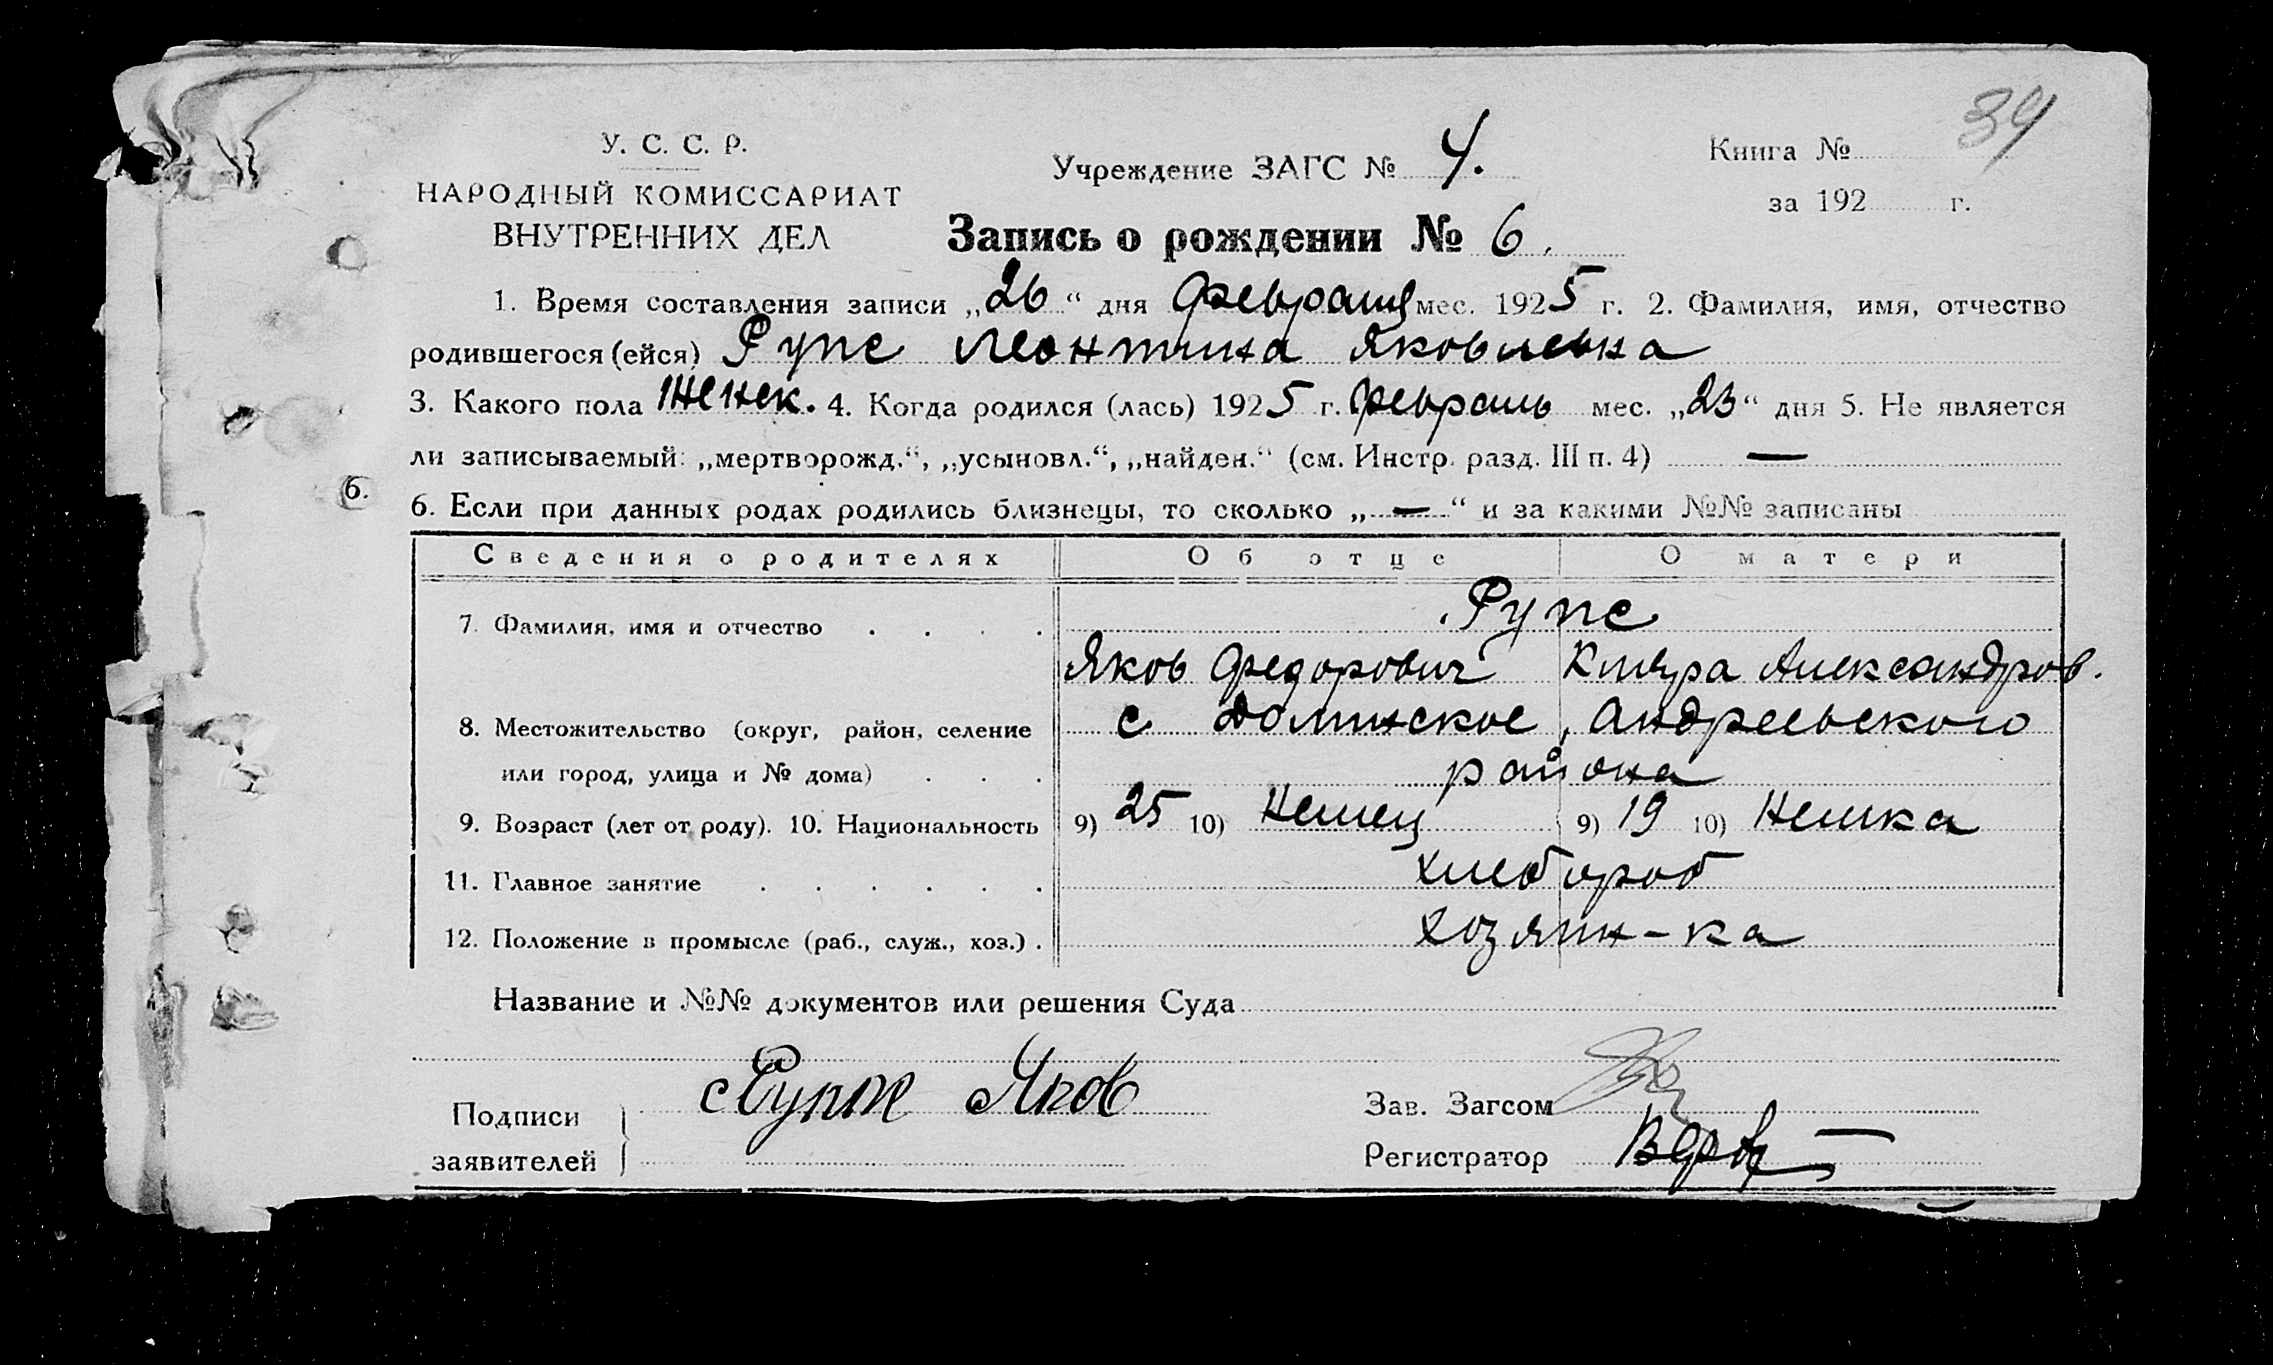 34
У. С. С. Р.
НАРОДНЫЙ КОМИССАРИАТ
ВНУТРЕННИХ ДЕЛ
Учреждение ЗАГС № 4.
Книга №
за 192 г.
Запись о рождении № 6.
1. Время составления записи „26“ дня февраля мес. 1925 г. 2. Фамилия, имя, отчество
родившегося (ейся) Рупс Леонтина Яковлевна
3. Какого пола женск. 4. Когда родился (лась) 1925 г. февраль мес. „23“ дня 5. Не является
ли записываемый: „мертворожд.“, „усыновл.“, „найден.“ (см. Инстр. разд. III п. 4) —
6.
6. Если при данных родах родились близнецы, то сколько „—“ и за какими №№ записаны
Сведения о родителях Об отце О матери
7. Фамилия, имя и отчество . . . . Рупс
Яков Федорович Клара Александров.
8. Местожительство (округ, район, селение с Долинское, Андреевского
или город, улица и № дома) . . . района
9. Возраст (лет от роду). 10. Национальность 9) 25 10) Немец 9) 19 10) Немка
11. Главное занятие . . . . . . хлебороб
12. Положение в промысле (раб., служ., хоз.) . хозяин-ка
Название и №№ документов или решения Суда
Подписи
заявителей
Яков
Зав. Загсом
Регистратор